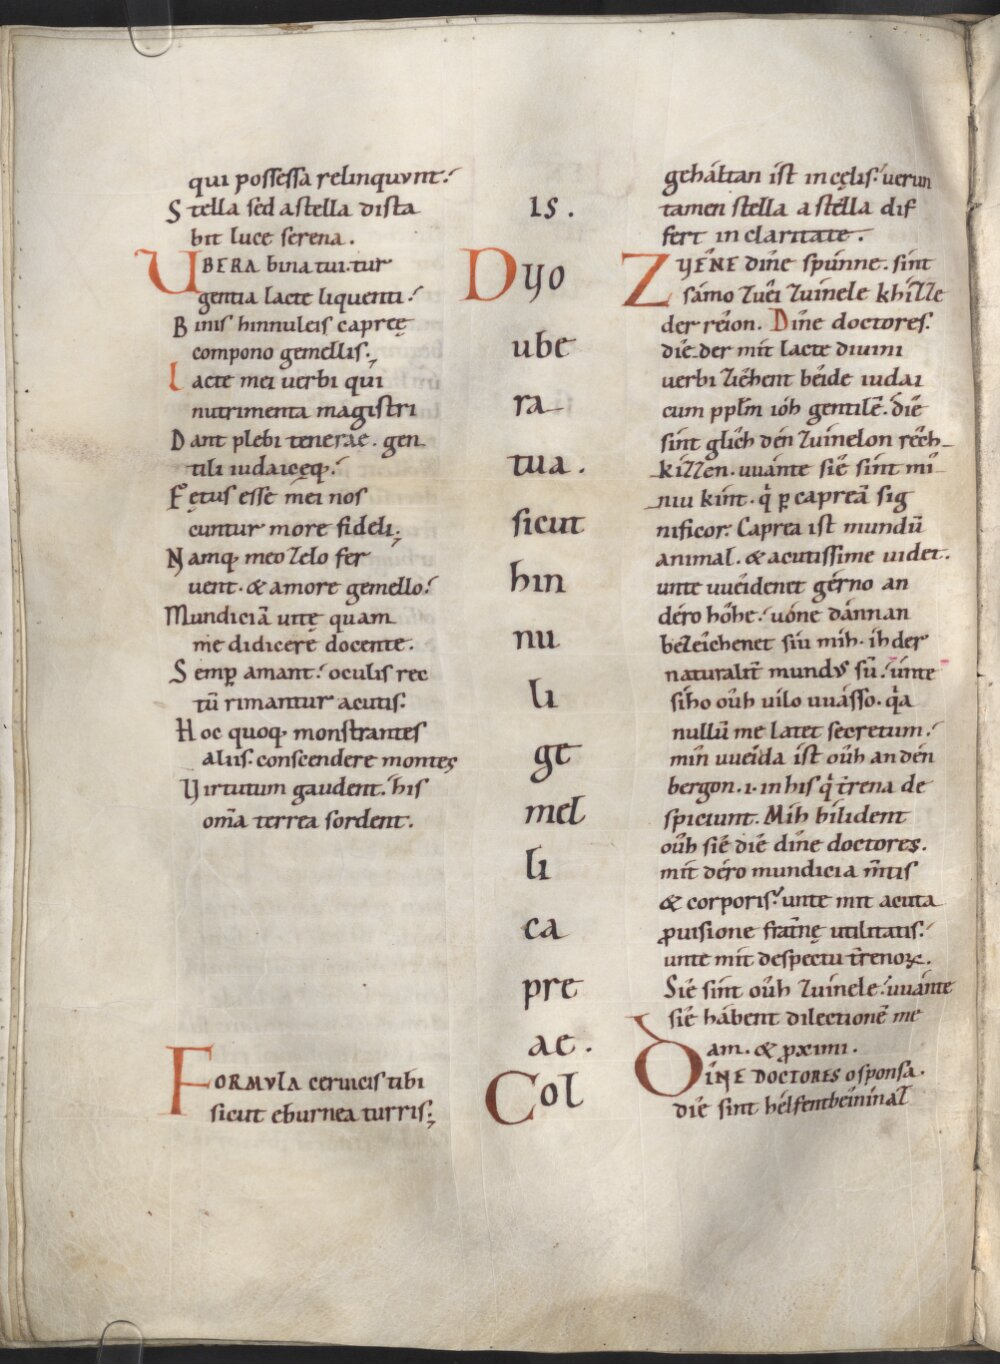 qui possessa relinquunt.
Stella sed a stella dista
bit luce serena.
UBERA bina tui. tur
gentia lacte liquenti.
Binis hinnuleis capreę
compono gemellis.
Lacte mei uerbi qui
nutrimenta magistri
Dant plebi tenerae. gen
tili iudaicęq;.
Fętus esse mei nos
cuntur more fideli.
Namq; meo zelo fer
uent. & amore gemello.
Mundiciā unte quam
me didicere docente.
Semp̄ amant. oculis rec
tū rimantur acutis.
Hoc quoq; monstrantes
aliis. conscendere montes
Uirtutum gaudent. his
om̄a terrea sordent.
FORMVLA ceruicis tibi
sicut eburnea turris.
is.
Dyo
ube
ra
tua.
sicut
hin
nu
li
ge
mel
li
ca
pre
ae.
Col
geháltan ist in cęlis. uerun
tamen stella a stélla dif
fert in claritate.
ZUÊNE dîne spúnne. sint
sámo zuêi zuinele khizze
der rêion. Dîne doctores.
dîe der mit lacte diuini
uerbi ziêhent béide iudai
cum ppl̄m ióh gentilē. diê
sint glich dén zuinelon rêch
kizzen. uuánte siê sint mî
niu kint. q̇ p̱ capreā sig
nificor. Caprea ist mundū
animal. & acutissime uidet.
unte uuêidenet gérno an
déro hóhe. uóne dánnan
bezeîchenet siu mih. ih der
naturalit̄ mundus sū. únte
sího oûh uilo uuásso. q̇a
nullū me latet secretum.
mîn uuéida ist oûh an dén
bergon. i. in his q̇ t̄rena de
spiciunt. Mih bilident
oûh siê diê dîne doctores.
mit déro mundicia m̄tis
& corporis. unte mit acuta
ꝓuisione frat̄nę utilitatis.
unte mit despectu t̄renoꝝ.
Siê sint oûh zuinele. uuánte
siê hábent dilectionē me
am. & ꝓximi.
DÎNE DOCTORES o sponsa.
diê sint hélfentbeininál